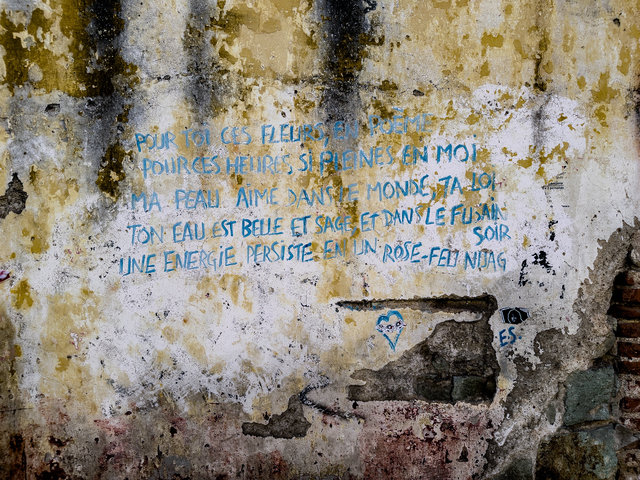 POUR TOI CES FLEURS, EN POÈME
POUR CES HEURES, SI PLEINES EN MOI
MA PEAU AIME DANS LE MONDE, TA LOI
TON EAU EST BELLE ET SAGE, ET DANS LE FUSAIN
SOIR
UNE ENERGIE PERSISTE EN UN ROSE-FEU
ES.